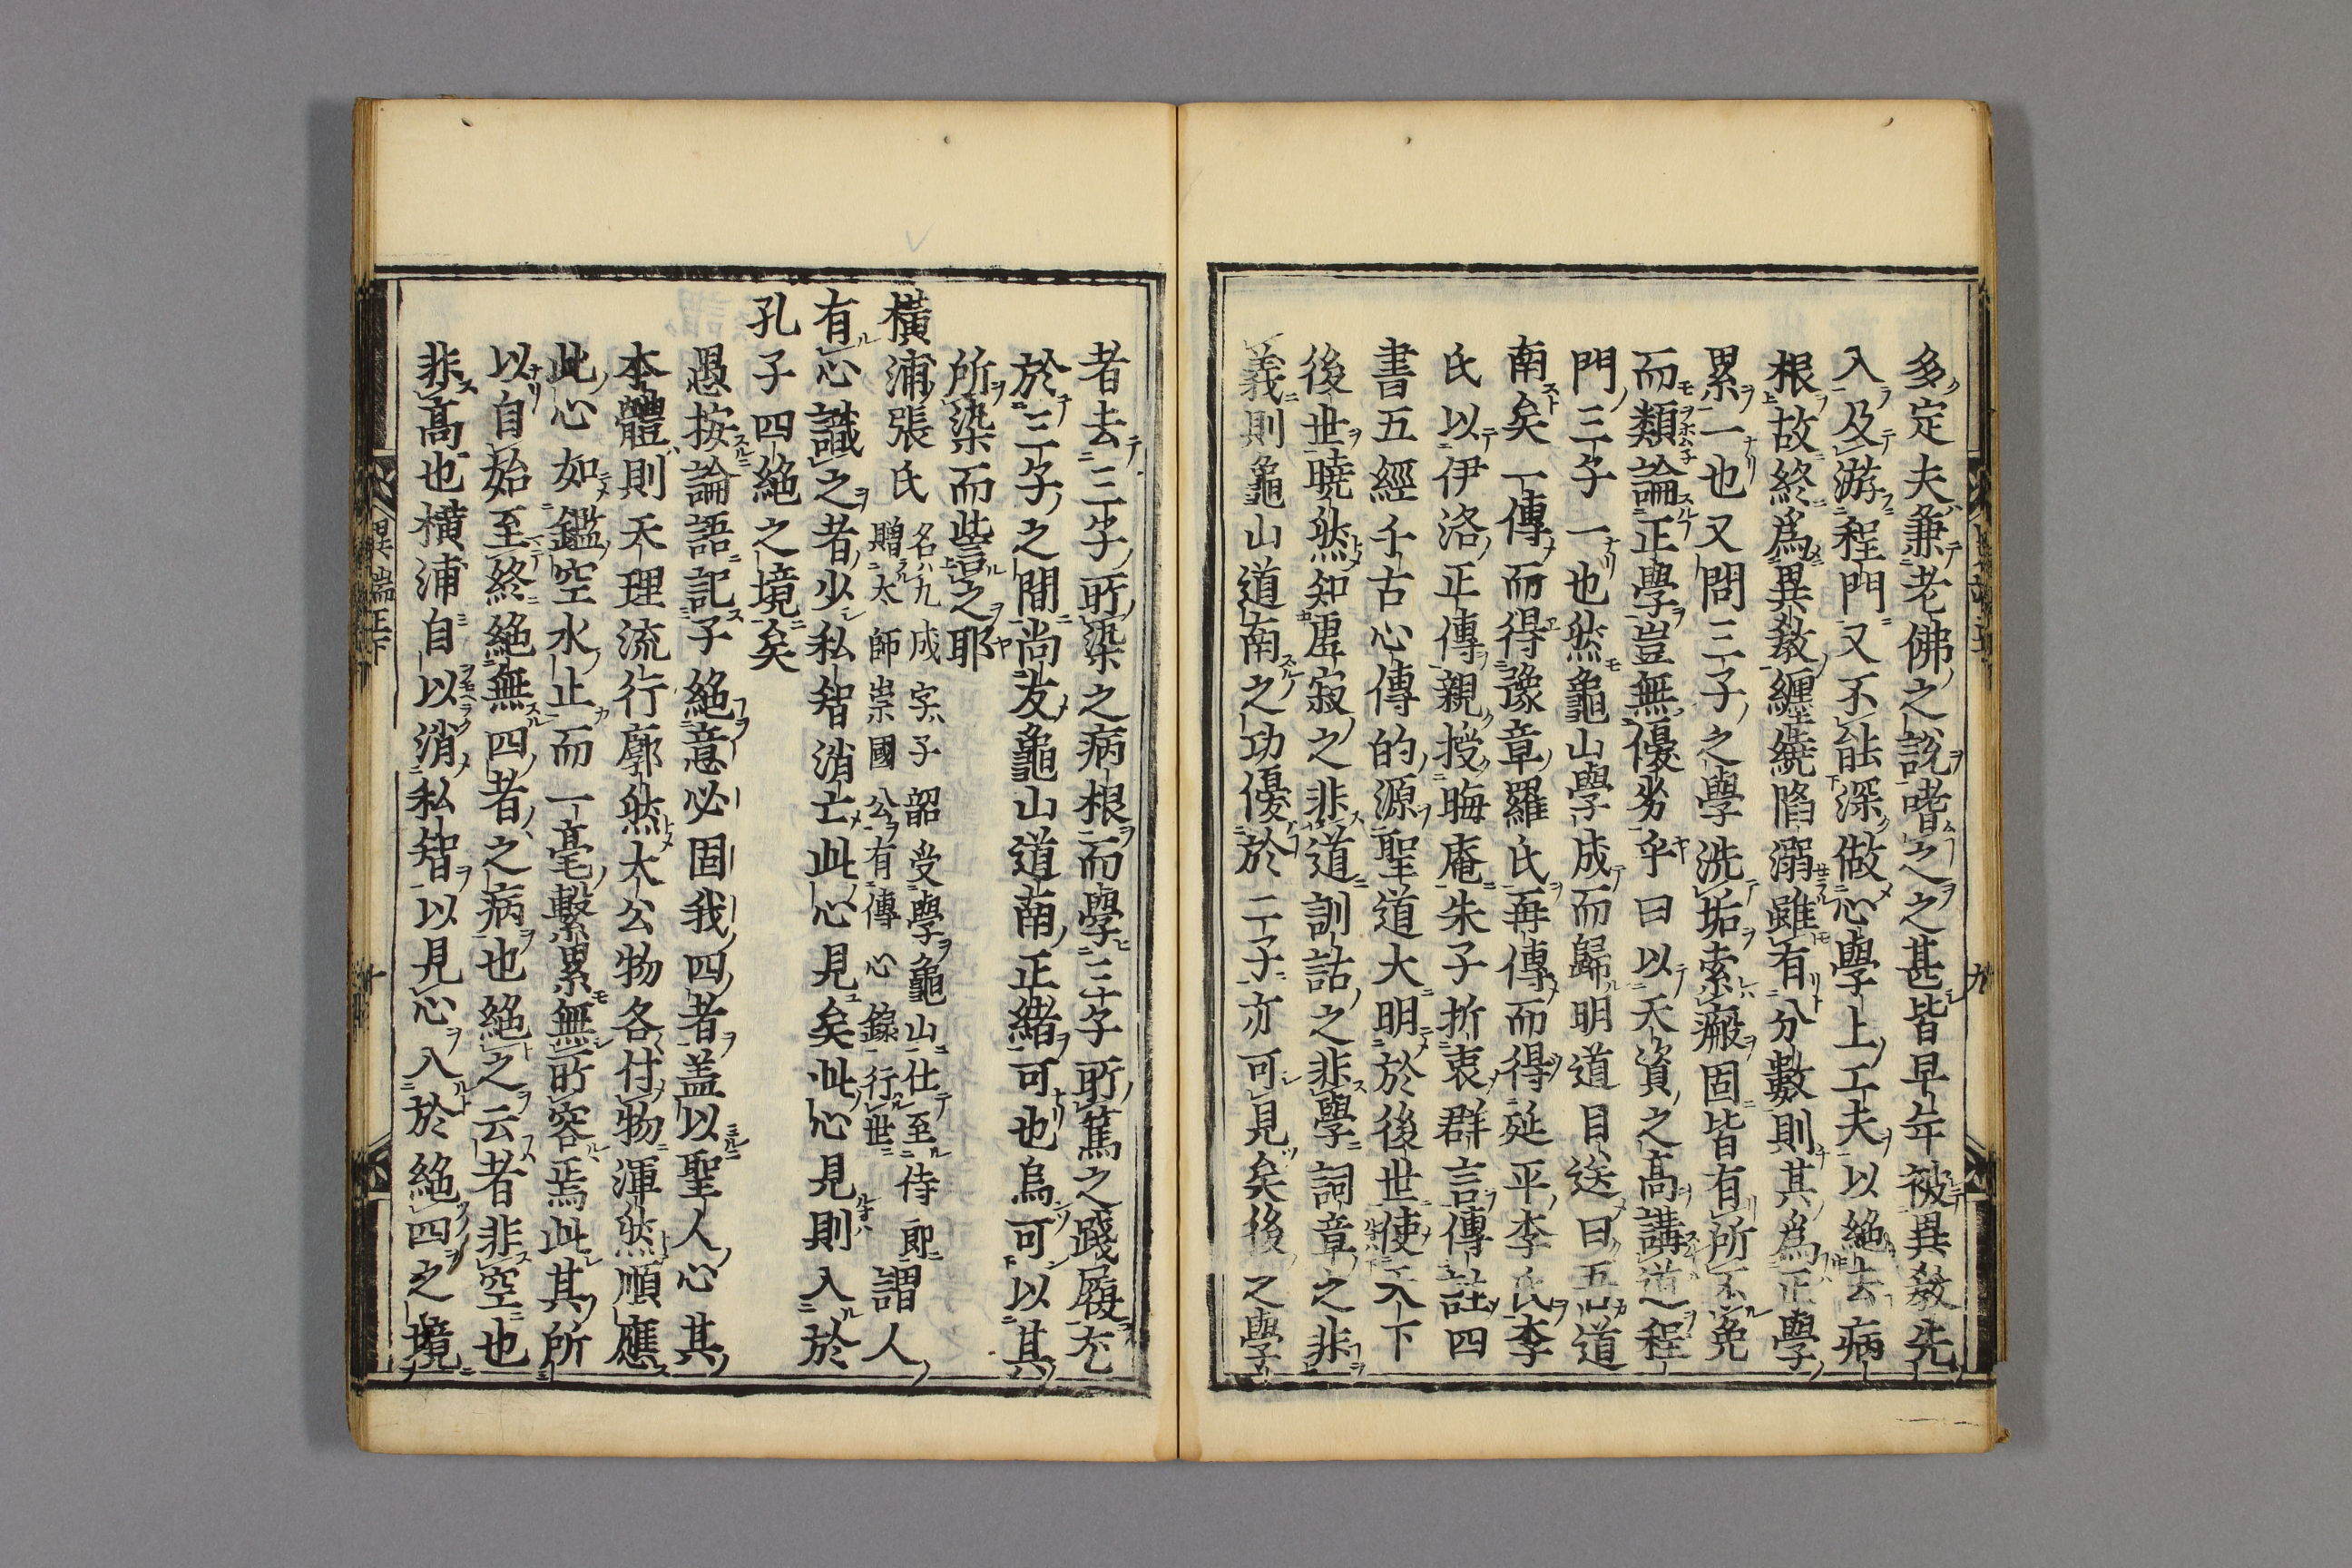 多定夫兼老佛之說嗜之之甚皆早年被異教先
入及游程門又不能深做心學上工夫以絕去病
根故終爲異教纏繞陷溺雖有分數則其爲正學
累一也又問三子之學洗垢索瘢固皆有所不免
而類論正學豈無優劣乎曰以天資之高講道程
門三子一也然龜山學成而歸明道目送曰吾道
南矣一傳而得豫章羅氏再傳而得延平李氏李
氏以伊洛正傳親授晦庵朱子折衷群言傳註四
書五經千古心傳的源聖道大明於後世使天下
後世曉然知虛寂之非道訓詁之非學詞章之非
義則龜山道南之功優於二子亦可見矣後之學
者去三子所染之病根而學三子所篤之踐履充
於三子之間尚友龜山道南正緒可也烏可以其
所染而訾之耶
橫浦張氏 名九成字子韶受學龜山仕至侍郎
贈太師崇國公有傳心錄行世 謂人
有心識之者少私智消亡此心見矣此心見則入於
孔子四絕之境矣
愚按論語記子絕意必固我四者盖以聖人心其
本體則天理流行廓然大公物各付物渾然順應
此心如鑑空水止而一毫繫累無所容焉此其所
以自始至終絕無四者之病也絕之云者非空也
非高也橫浦自以消私智以見心入於絕四之境
異端正下
九
十